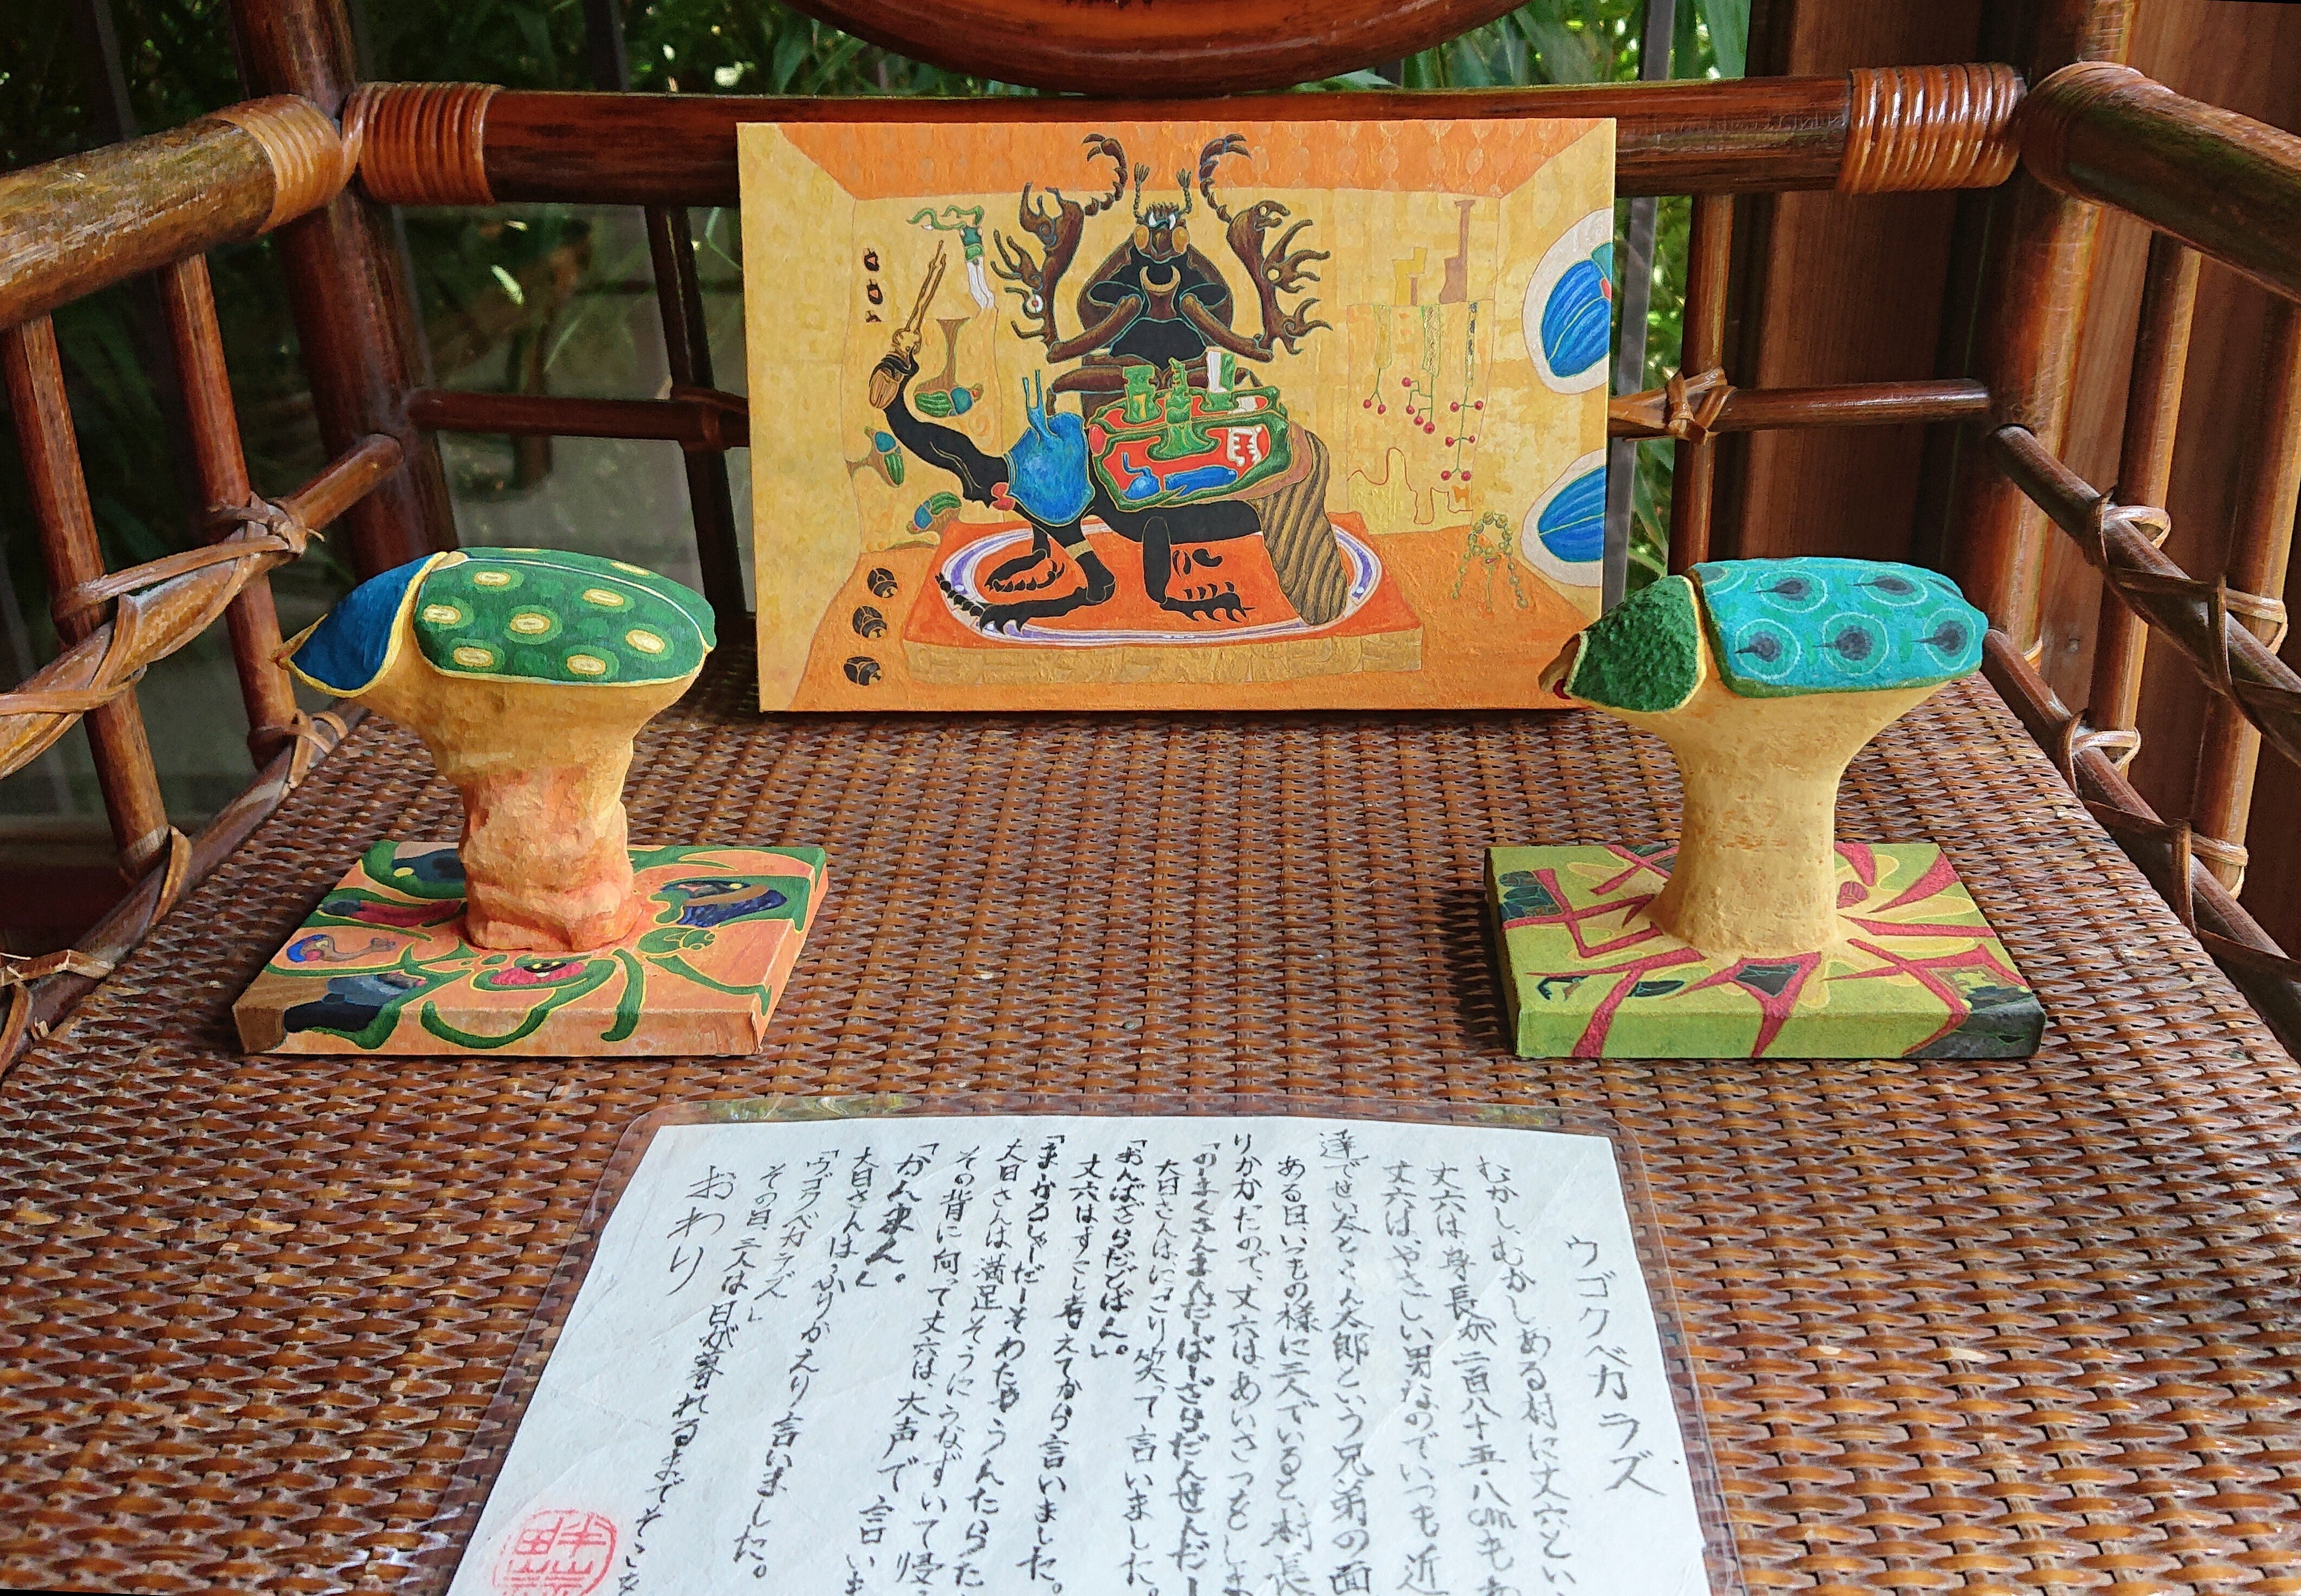 ウゴクベカラズ
むかし、むかしある村に丈六とい
丈六は身長が二百八十五・八cmもあ
丈六は、やさしい男なのでいつも近
達でせい太とこん太郎という兄弟の面
ある日、いつもの様に三人でいると、村長
りかかったので、丈六はあいさつをしま
「のーまくさんまんだーばーざらだんせんだー
大日さんは、にこり笑って言いました。
「おんばざらだどばん。」
丈六はすこし考えてから言いました。
「まーかろしゃーだーそわたやうんたらた
大日さんは満足そうにうなずいて帰
その背に向って丈六は、大声で言いま
「かんまん。」
大日さんは、ふりかえり言いました。
「ウゴクベカラズ」
その日、三人は日が暮れるまでそこ
おわり